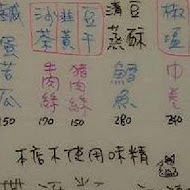 椒鹽
中卷
豆酥
清蒸
鱈魚
280
豆干
韭黃
沙茶
豬肉絲
150
牛肉絲
170
鹹蛋苦瓜
150
本店不使用味精